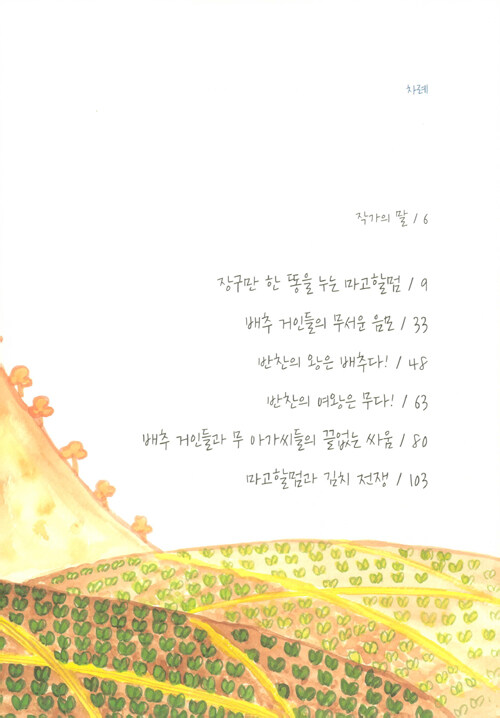 차례
작가의 말 / 6
장구만 한 똥을 누는 마고할멈 / 9
배추 거인들의 무서운 음모 / 33
반찬의 왕은 배추다! / 48
반찬의 여왕은 무다! / 63
배추 거인들과 무 아가씨들의 끝없는 싸움 / 80
마고할멈과 김치 전쟁 / 103